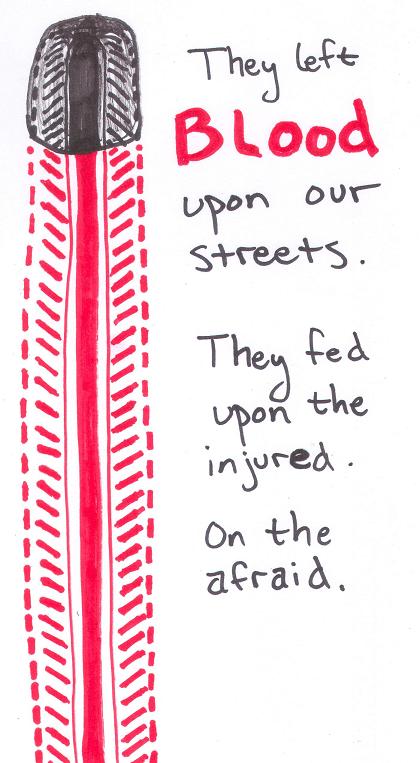 They left
Blood
upon our
streets.
They fed
upon the
injured.
On the
afraid.